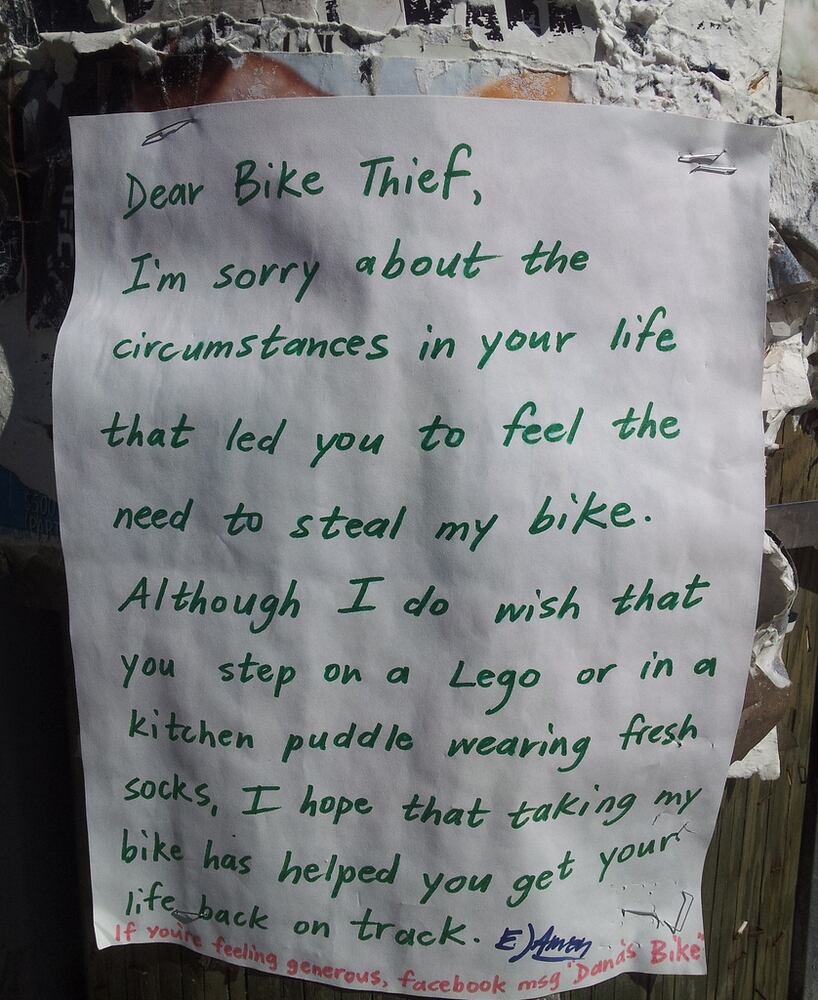 Dear Bike Thief,
I'm sorry about the
circumstances in your life
that led you to feel the
need to steal my bike.
Although I do wish that
you step on a Lego or in a
kitchen puddle wearing fresh
socks, I hope that taking my
bike has helped you get your
life back on track.
If you're feeling generous, facebook msg "Dana's Bike"